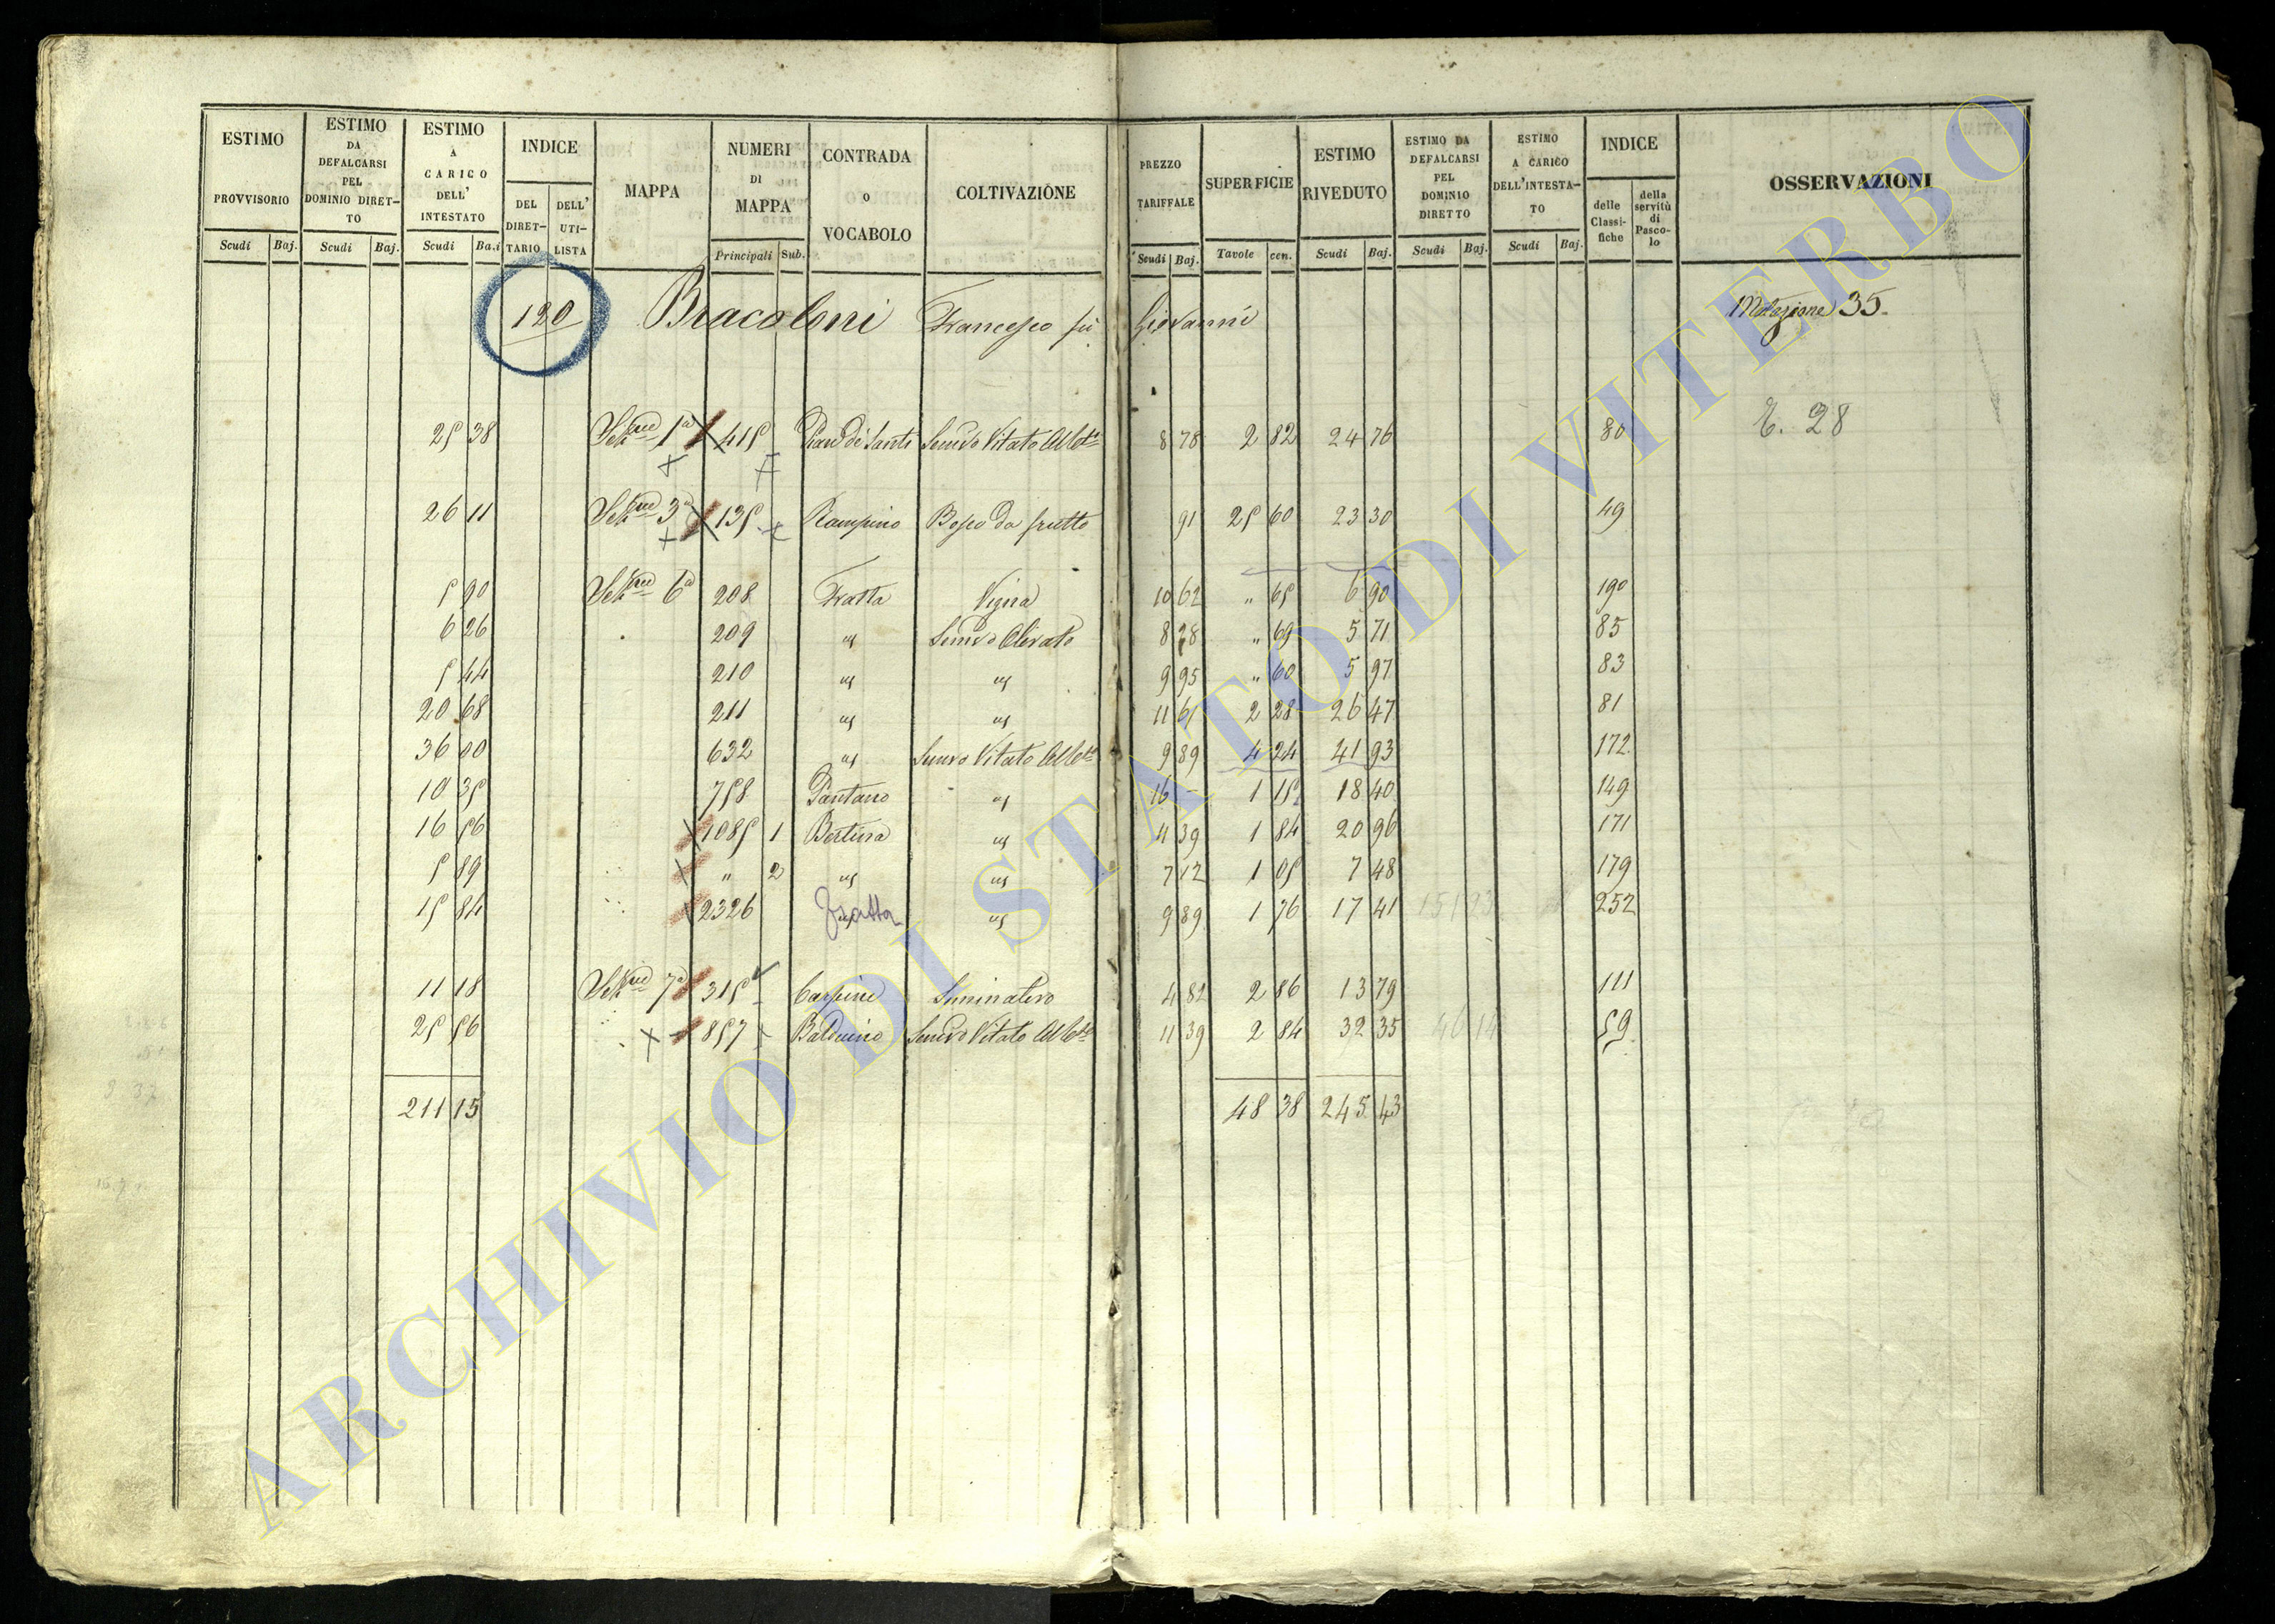 ESTIMO PROVVISORIO Scudi Baj. ESTIMO DA DEFALCARSI PEL DOMINIO DIRET-TO Scudi Baj. ESTIMO A CARICO DELL' INTESTATO Scudi Ba.i INDICE DEL DIRET-TARIO DELL' UTI-LISTA MAPPA NUMERI DI MAPPA Principali Sub. CONTRADA o VOCABOLO COLTIVAZIONE PREZZO TARIFFALE Scudi Baj. SUPERFICIE Tavole cen. ESTIMO RIVEDUTO Scudi Baj. ESTIMO DA DEFALCARSI PEL DOMINIO DIRETTO Scudi Baj. ESTIMO A CARICO DELL'INTESTA-TO Scudi Baj. INDICE delle Classi-fiche della servitù di Pasco-lo OSSERVAZIONI
120 Bracaloni Francesco fù Giovanni Mutazione 35.
25 38 Sez.ne 1a 415 Pian di Santi Semvo Vitato Albto 8 78 2 82 24 76 80 E. 28
26 11 Sez.ne 3a 135 Rampino Bosco da frutto 91 25 60 23 30 49
5 90 Sez.ne 6a 208 Fratta Vigna 10 62 " 65 6 90 190
6 26 209 " Semvo Olivato 8 28 " 69 5 71 85
5 44 210 " " 9 95 " 60 5 97 83
20 68 211 " " 11 61 2 28 26 47 81
36 00 632 " Semvo Vitato Albto 9 89 4 24 41 93 172
10 35 758 Pantano " 16 – 1 15 18 40 149
16 56 1085 1 Bertina " 11 39 1 84 20 96 171
5 89 " 2 " " 7 12 1 05 7 48 179
15 84 2326 Fratta " 9 89 1 76 17 41 151 23 252
11 18 Sez.ne 7a 315 Carpine Seminativo 4 82 2 86 13 79 111
25 56 857 Balduino Semvo Vitato Albto 11 39 2 84 32 35 46 14 59
211 15 48 38 245 43
ARCHIVIO DI STATO DI VITERBO